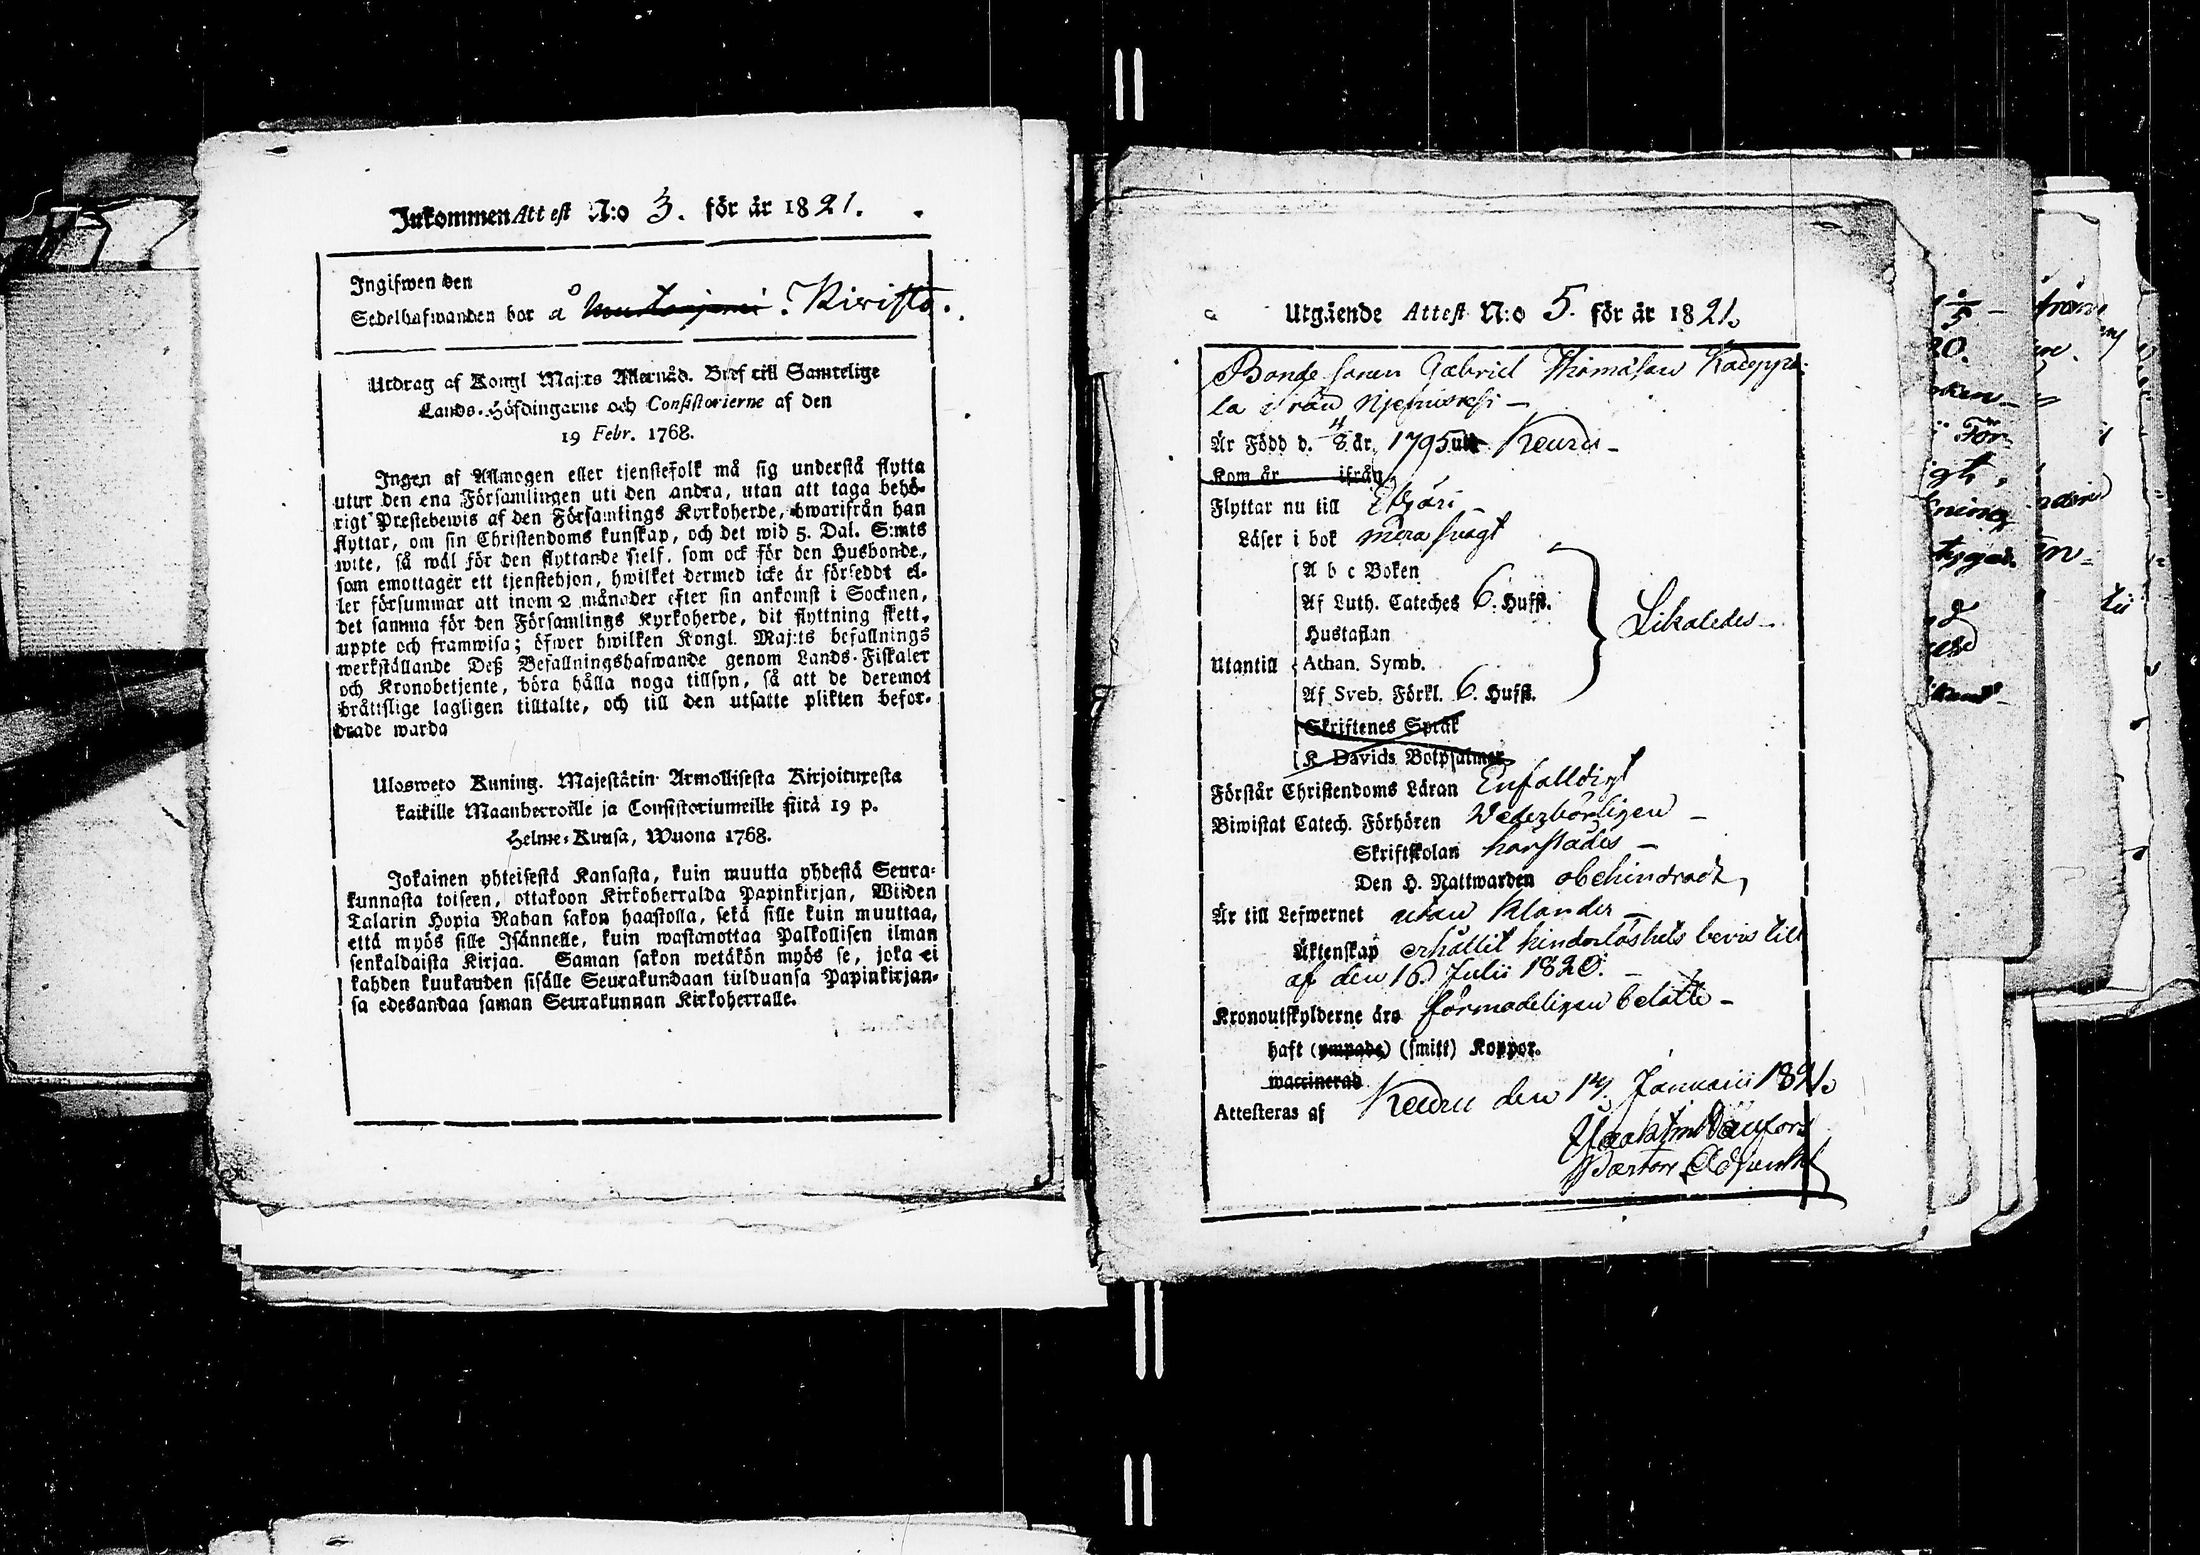 Inkommen Attest N:o 3. för år 1821.
Ingifwen den
Sedelhafwanden bor å Kiristo.
Utdrag af Kongl Maj:ts Allernåd. Bref till Samtelige
Lands-Höfdingarne och Consistorierne af den
19 Febr. 1768.
Ingen af Allmogen eller tjenstefolk må sig understå flytta
utur den ena Församlingen uti den andra, utan att taga behö-
rigt Prestebewis af den Församlings Kyrkoherde, hwarifrån han
flyttar, om sin Christendoms kunskap, och det wid 5. Dal. S:mts
wite, så wäl för den flyttande sielf, som ock för den Husbonde,
som emottager ett tjenstehjon, hwilket dermed icke är försedt el-
ler försummar att inom 2 månader efter sin ankomst i Socknen,
det samma för den Församlings Kyrkoherde, dit flyttning skett,
uppte och framwisa; öfwer hwilken Kongl. Maj:ts befallnings
werkställande Deß Befallningshafwande genom Lands-Fiskaler
och Kronobetjente, böra hålla noga tillsyn, så att de deremot
bråttslige lagligen tilltalte, och till den utsatte plikten befor-
drade warda
Ulosweto Kuning. Majestätin Armollisesta Kirjoituxesta
kaikille Maanherroille ja Consistoriumeille siitä 19 p.
Helme-Kuusa, Wuona 1768.
Jokainen yhteisestä Kansasta, kuin muutta yhdestä Seura-
kunnasta toiseen, ottakoon Kirkoherralda Papinkirjan, Wiiden
Talarin Hopia Rahan sakon haastolla, sekä sille kuin muuttaa,
että myös sille Isännelle, kuin wastanottaa Palkollisen ilman
senkaldaista Kirjaa. Saman sakon wetäkön myös se, joka ei
kahden kuukauden sisälle Seurakundaan tulduansa Papinkirjan-
sa edesandaa saman Seurakunnan Kirkoherralle.
Utgående Attest N:o 5. för år 1821.
Bonde sonen Gabriel Thomasson Kaleppa-
la ifrån
Är Född d. 8/4 år 1795 uti Keuru
Kom år ifrån
Flyttar nu till Etzäri
Läser i bok mera svagt
A b c Boken
Af Luth. Cateches 6. Hufst.
Hustaflan
Utantill Athan. Symb.
Af Sveb. Förkl. 6. Hufst.
Likaledes
Skriftenes Språk
K Davids Botpsalmer
Förstår Christendoms Läran Enfalldigt
Biwistat Catech. Förhören Wederbörligen
Skriftskolan harstädes
Den H. Nattwarden obehindradt,
Är till Lefwernet utan klander
Äktenskap erhållit hinderlöshets bevis till
af den 16. Julii 1820.
Kronoutskylderne äro förmodeligen betalte
haft (ympade) (smitt) Koppor.
waccinerad
Attesteras af Keuru den 14. Januarii 1821.